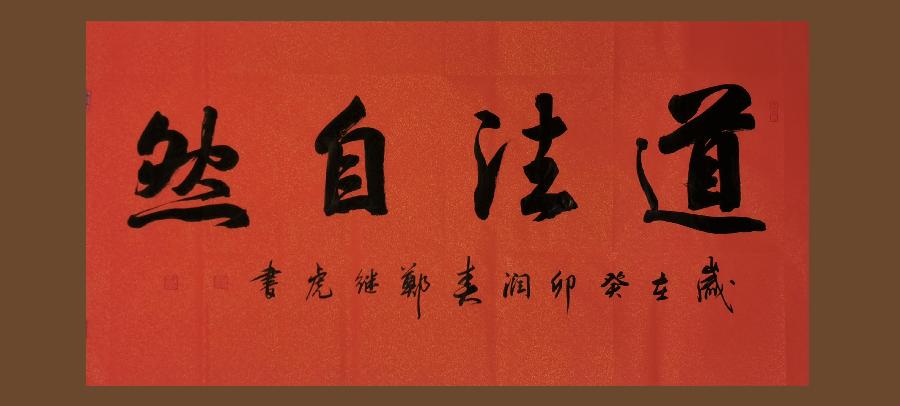 道法自然
歲在癸卯潤春鄭继虎書